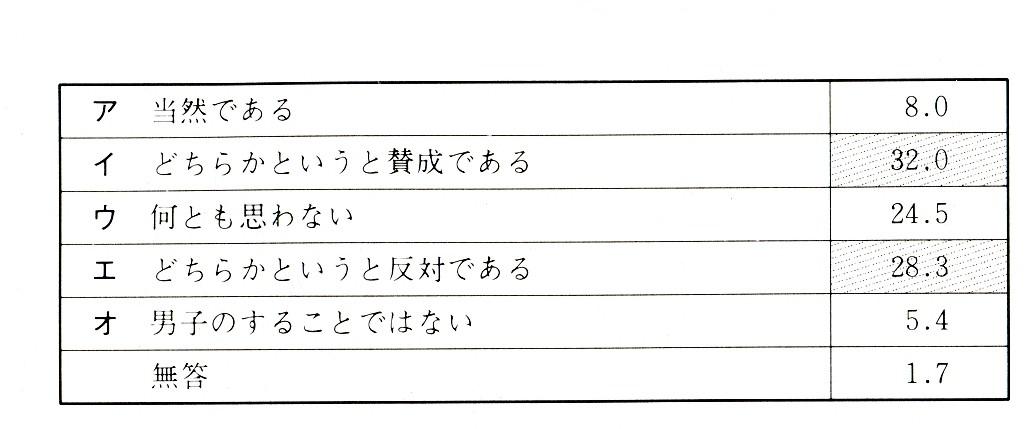 ア 当然である 8.0
イ どちらかというと賛成である 32.0
ウ 何とも思わない 24.5
エ どちらかというと反対である 28.3
オ 男子のすることではない 5.4
無答 1.7